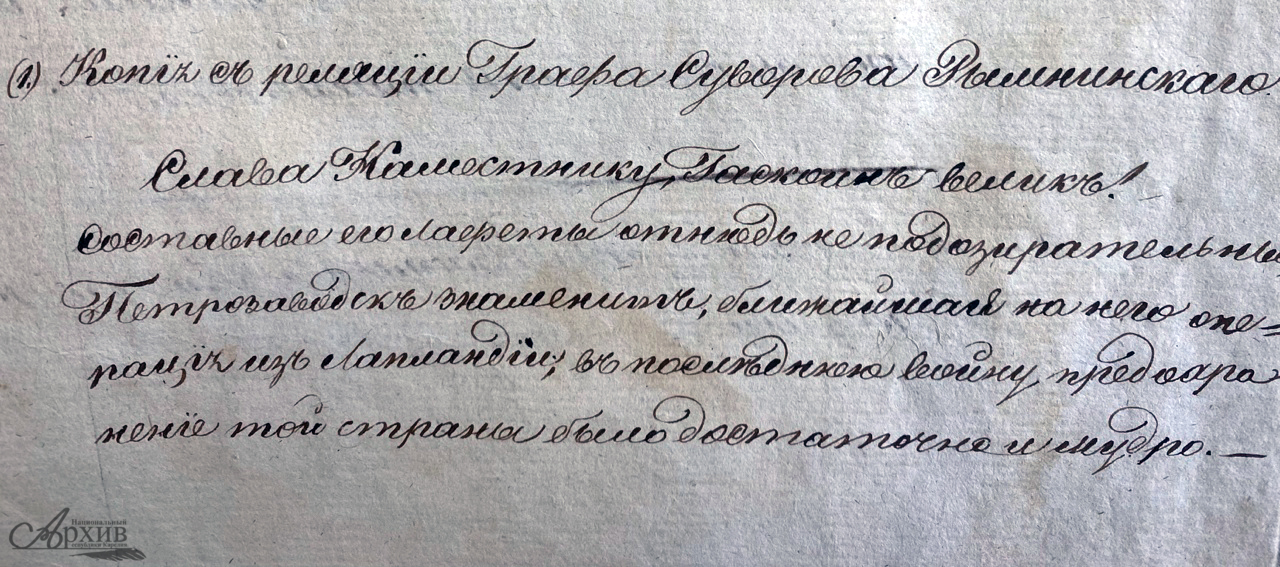 (1.) Копія съ реляціи Графа Суворова Рымнинскаго.
Слава Каместнику, Гаскоинъ великъ!
составные его лафеты отнюдь не подозирательны
Петрозаводскъ знаменитъ, ближайшая на него опе=
рація изъ Лапландіи; въ послѣднюю войну предохра
неніе той страны было достаточно и мудро. —
Национальный
Архив
республики Карелия